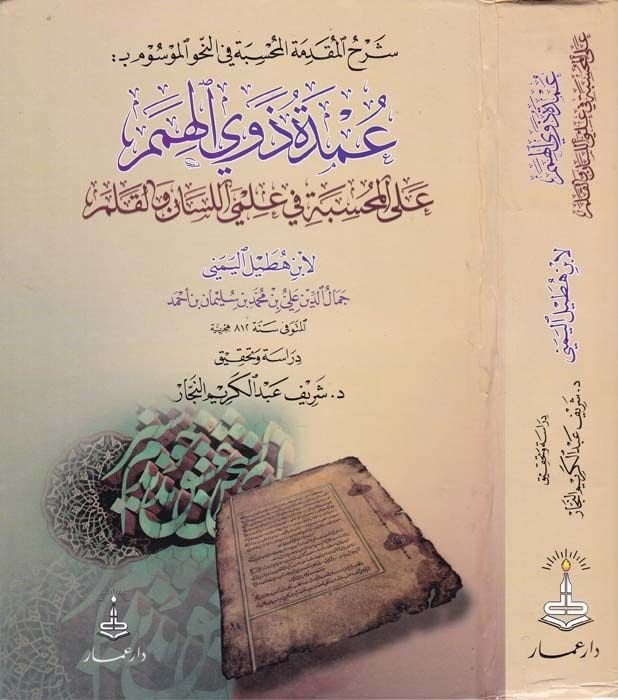 شرح المقدمة المحسبة في النحو الموسوم بـ:
عُمْدَةُ ذَوِي الهِمَمِ
عَلَى المُحْسِبَةِ في عِلْمَيِ اللِّسَانِ وَالقَلَمِ
لابن هُطَيْل اليَمَنِي
جمال الدين علي بن محمد بن سليمان بن أحمد
المتوفى سنة ٨١٢ هجرية
دراسة وتحقيق
د. شريف عبد الكريم النجار
دار عمار
عُمْدَةُ ذَوِي الهِمَمِ
عَلَى المُحْسِبَةِ في عِلْمَيِ اللِّسَانِ وَالقَلَمِ
لابن هُطَيْل اليَمَنِي
دراسة وتحقيق
د. شريف عبد الكريم النجار
دار عمار